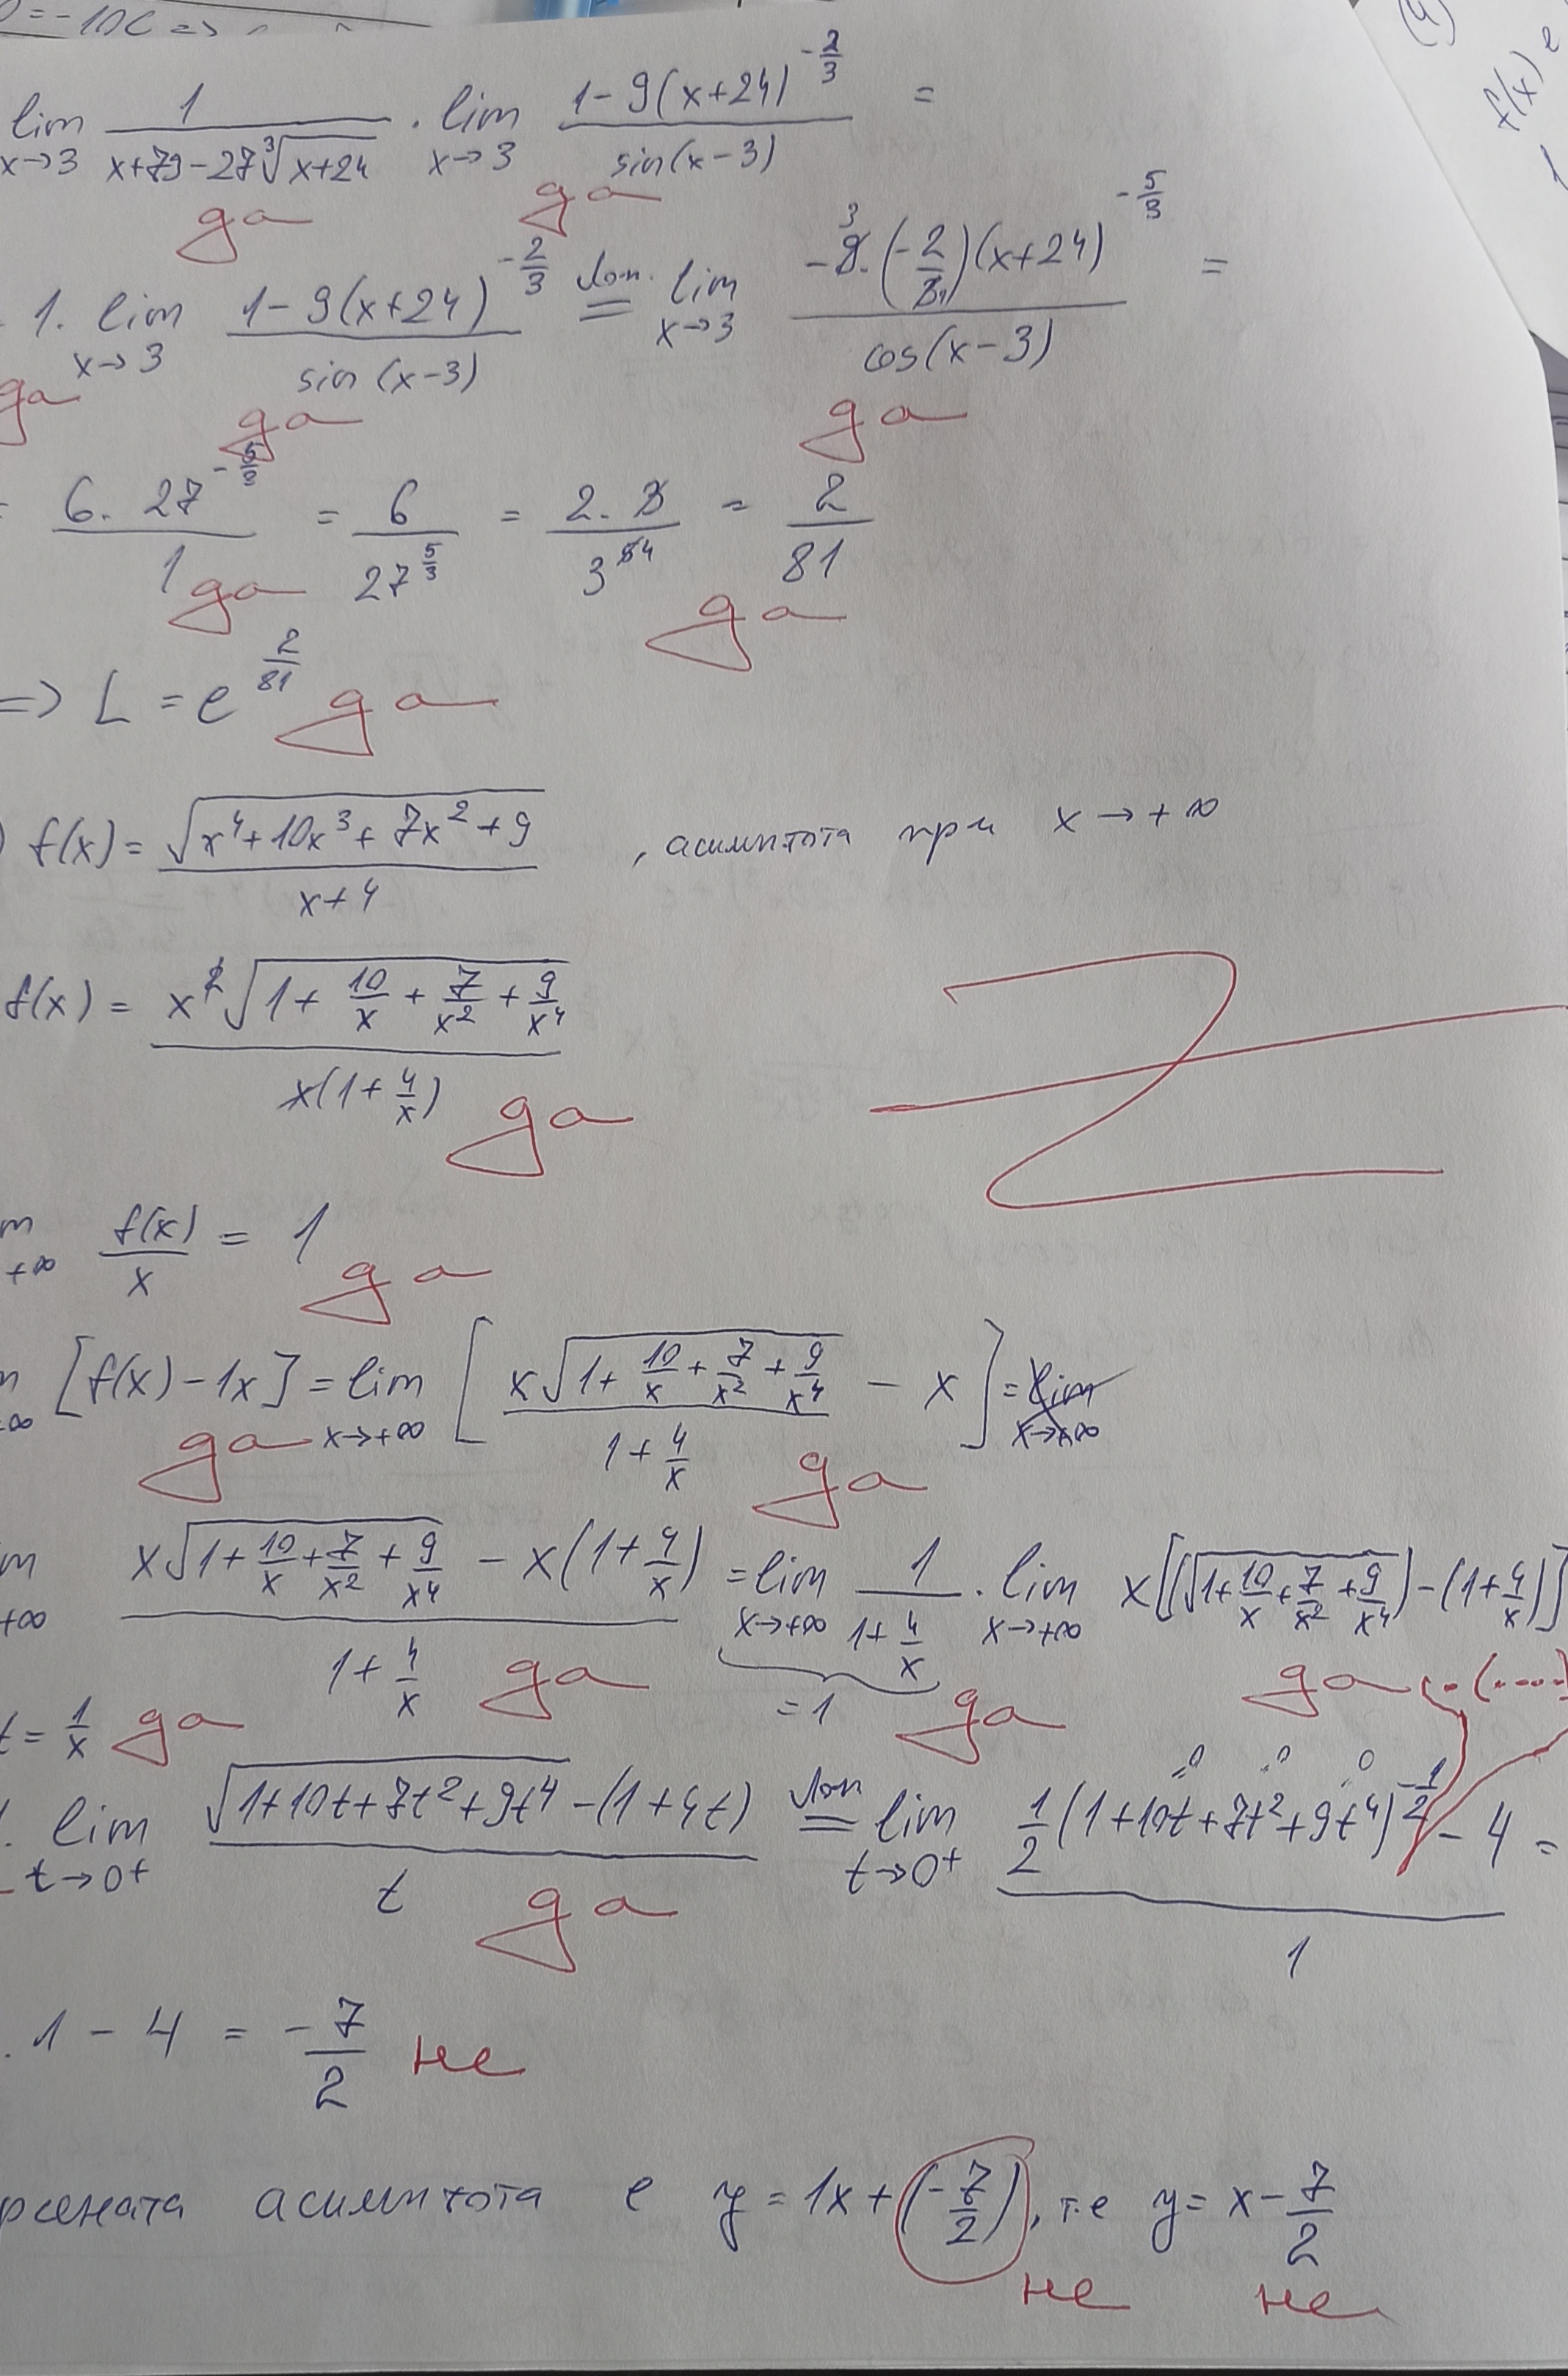 = -10C =>
(4)
f(x) e
lim x→3 1/(x+79-27∛(x+24)) · lim x→3 (1-9(x+24)^(-2/3))/sin(x-3) =
да да
1. lim x→3 (1-9(x+24)^(-2/3))/sin(x-3) =Лоп. lim x→3 (-9·(-2/3)(x+24)^(-5/3))/cos(x-3) =
3 1
да да да
= (6·27^(-5/3))/1 = 6/27^(5/3) = (2·3)/3^5 4 = 2/81
да да
=> L = e^(2/81) да
) f(x) = √(x⁴+10x³+7x²+9)/(x+4) , асимптота при x→+∞
f(x) = x²√(1+10/x+7/x²+9/x⁴)/(x(1+4/x)) да
m +∞ f(x)/x = 1 да
[f(x)-1x] = lim x→+∞ [x√(1+10/x+7/x²+9/x⁴)/(1+4/x) - x] = lim x→+∞
да да
m +∞ (x√(1+10/x+7/x²+9/x⁴) - x(1+4/x))/(1+4/x) = lim x→+∞ 1/(1+4/x) · lim x→+∞ x[(√(1+10/x+7/x²+9/x⁴))-(1+4/x)]
да =1 да да .(....)
t = 1/x да
lim t→0+ (√(1+10t+7t²+9t⁴)-(1+4t))/t =Лоп lim t→0+ (1/2(1+10t+7t²+9t⁴)^(-1/2) - 4)/1 =
0 0 0
да
. 1 - 4 = -7/2 не
асимптота е y = 1x + (-7/2), т.е y = x - 7/2
не не